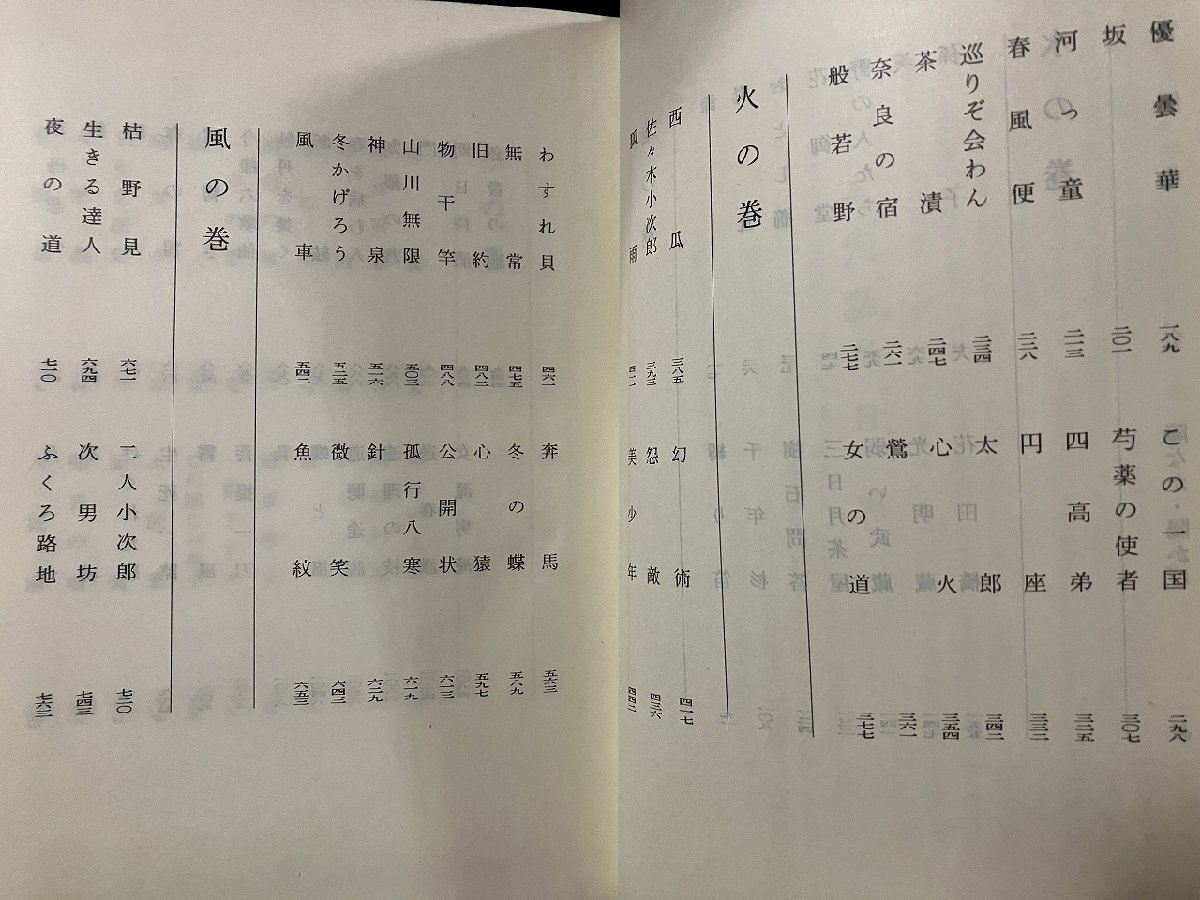 優曇華 一八九
坂 二〇一
河っ童 二一三
春風便 二二八
巡りぞ会わん 二三四
茶漬 二四七
奈良の宿 二六一
般若野 二七七
この一国 二九八
芍薬の使者 三〇七
四高弟 三二五
円座 三三二
太郎 三四二
心火 三五四
鶯 三六一
女の道 三七七
火の巻
西瓜 三八五
佐々木小次郎 三九三
狐雨 四一一
幻術 四一七
怨敵 四三六
美少年 四四二
わすれ貝 四六一
無常 四七五
旧約 四八二
物干竿 四八八
山川無限 五〇三
神泉 五一六
冬かげろう 五二五
風車 五四二
奔馬 五六三
冬の蝶 五八九
心猿 五九七
公開状 六一三
孤行八寒 六一九
針 六二九
微笑 六四二
魚紋 六五三
風の巻
枯野見 六七一
生きる達人 六九四
夜の道 七一〇
二人小次郎 七二〇
次男坊 七四三
ふくろ路地 七六三